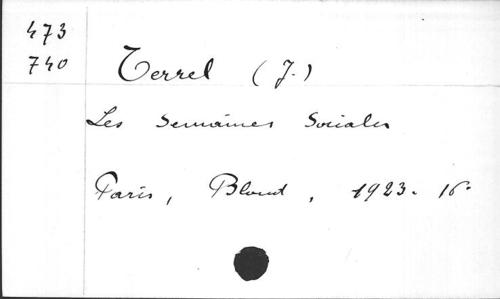 473
740
Terrel (J.)
Les Semaines Sociales
Paris, Bloud, 1923. 16°